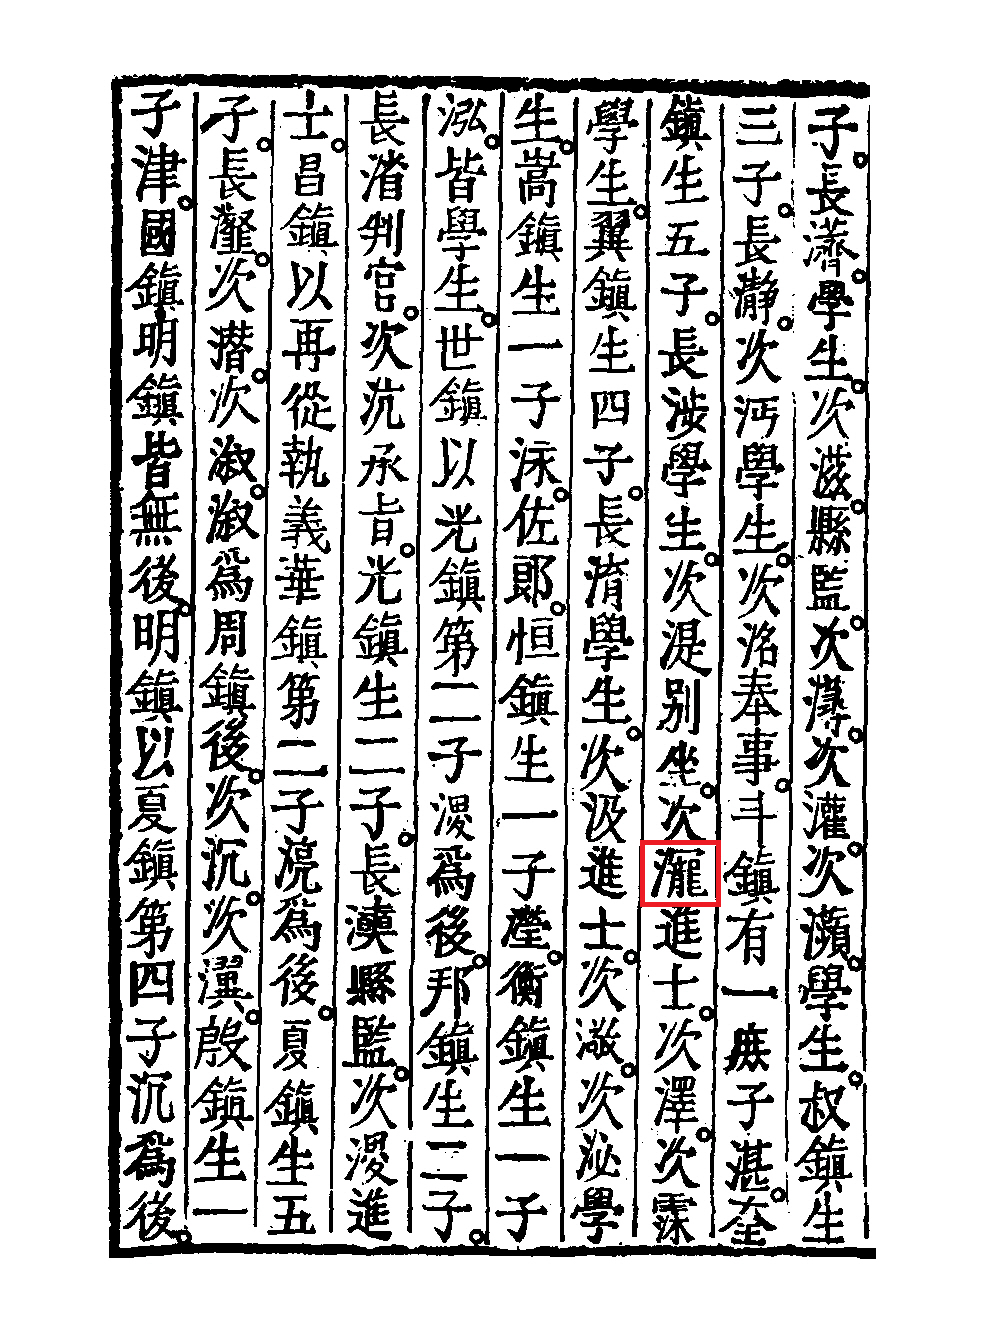 子長濟學生次滋縣監次溥次灌次瀕學生叔鎮生
三子長瀞次沔學生次洺奉事斗鎮有一庶子湛奎
鎮生五子長涉學生次湜别坐次瀧進士次澤次霂
學生翼鎮生四子長淯學生次汲進士次澂次泌學
生嵩鎮生一子泳佐郎恒鎮生一子瀅衡鎮生一子
泓皆學生世鎮以光鎮第二子渂為後邦鎮生二子
長濳判官次沆承旨光鎮生二子長漢縣監次渂進
士昌鎮以再從執義華鎮第二子滰為後夏鎮生五
子長灐次潛次淑淑為周鎮後次沉次瀷殷鎮生一
子津國鎮明鎮皆無後明鎮以夏鎮第四子沉為後